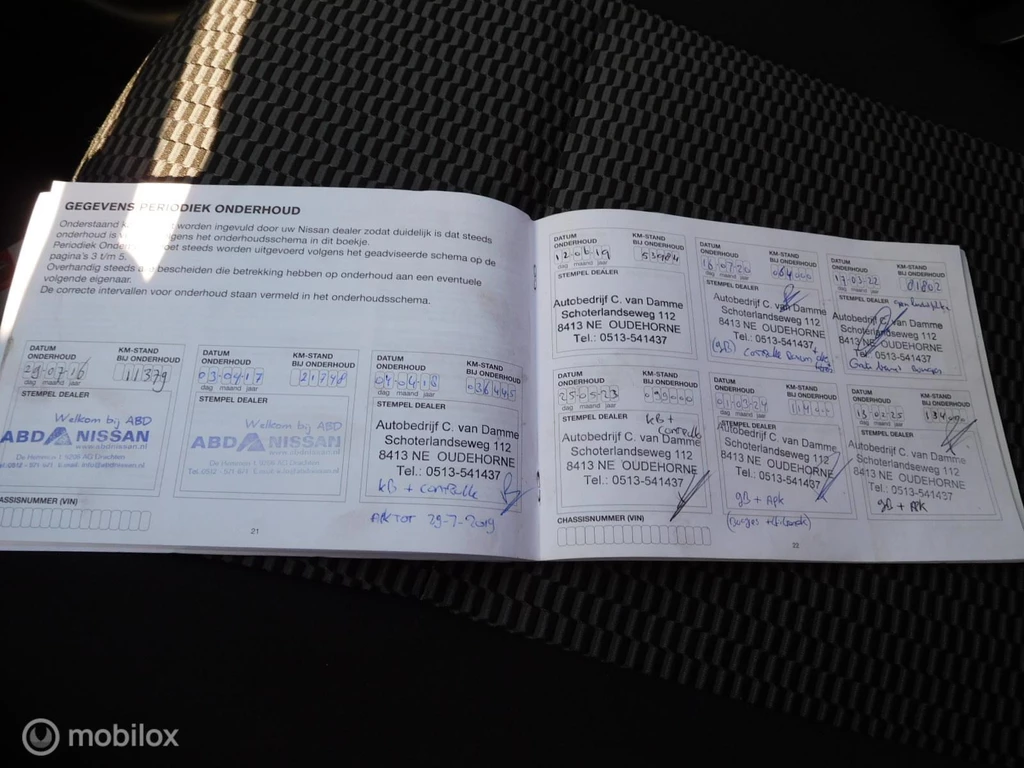 GEGEVENS PERIODIEK ONDERHOUD
Onderstaand worden ingevuld door uw Nissan dealer zodat duidelijk is dat steeds
onderhoud is volgens het onderhoudsschema in dit boekje.
Periodiek steeds worden uitgevoerd volgens het geadviseerde schema op de
pagina's 3 t/m 5.
Overhandig steeds bescheiden die betrekking hebben op onderhoud aan een eventuele
volgende eigenaar.
De correcte intervallen voor onderhoud staan vermeld in het onderhoudsschema.
DATUM ONDERHOUD
KM-STAND BIJ ONDERHOUD
29-07-16
11379
dag maand jaar
STEMPEL DEALER
Welkom bij ABD
ABD NISSAN
www.abdnissan.nl
DATUM ONDERHOUD
KM-STAND BIJ ONDERHOUD
03-04-17
21748
dag maand jaar
STEMPEL DEALER
Welkom bij ABD
ABD NISSAN
www.abdnissan.nl
DATUM ONDERHOUD
KM-STAND BIJ ONDERHOUD
04-04-18
036445
dag maand jaar
STEMPEL DEALER
Autobedrijf C. van Damme
Schoterlandseweg 112
8413 NE OUDEHORNE
Tel.: 0513-541437
kB + controle
APK TOT 29-7-2019
CHASSISNUMMER (VIN)
21
DATUM ONDERHOUD
KM-STAND BIJ ONDERHOUD
12-06-19
53984
dag maand jaar
STEMPEL DEALER
Autobedrijf C. van Damme
Schoterlandseweg 112
8413 NE OUDEHORNE
Tel.: 0513-541437
DATUM ONDERHOUD
KM-STAND BIJ ONDERHOUD
07-20
064000
dag maand jaar
STEMPEL DEALER
Autobedrijf C. van Damme
Schoterlandseweg 112
8413 NE OUDEHORNE
Tel.: 0513-541437
DATUM ONDERHOUD
KM-STAND BIJ ONDERHOUD
17-03-22
81802
dag maand jaar
STEMPEL DEALER
Autobedrijf C. van Damme
Schoterlandseweg 112
8413 NE OUDEHORNE
Tel.: 0513-541437
DATUM ONDERHOUD
KM-STAND BIJ ONDERHOUD
25-05-23
099000
dag maand jaar
STEMPEL DEALER
kB +
controle
Autobedrijf C. van Damme
Schoterlandseweg 112
8413 NE OUDEHORNE
Tel.: 0513-541437
DATUM ONDERHOUD
KM-STAND BIJ ONDERHOUD
01-03-24
dag maand jaar
STEMPEL DEALER
Autobedrijf C. van Damme
Schoterlandseweg 112
8413 NE OUDEHORNE
Tel.: 0513-541437
gB + Apk
DATUM ONDERHOUD
KM-STAND BIJ ONDERHOUD
13-02-25
dag maand jaar
STEMPEL DEALER
Autobedrijf C. van Damme
Schoterlandseweg 112
8413 NE OUDEHORNE
Tel.: 0513-541437
gB + APK
CHASSISNUMMER (VIN)
22
mobilox